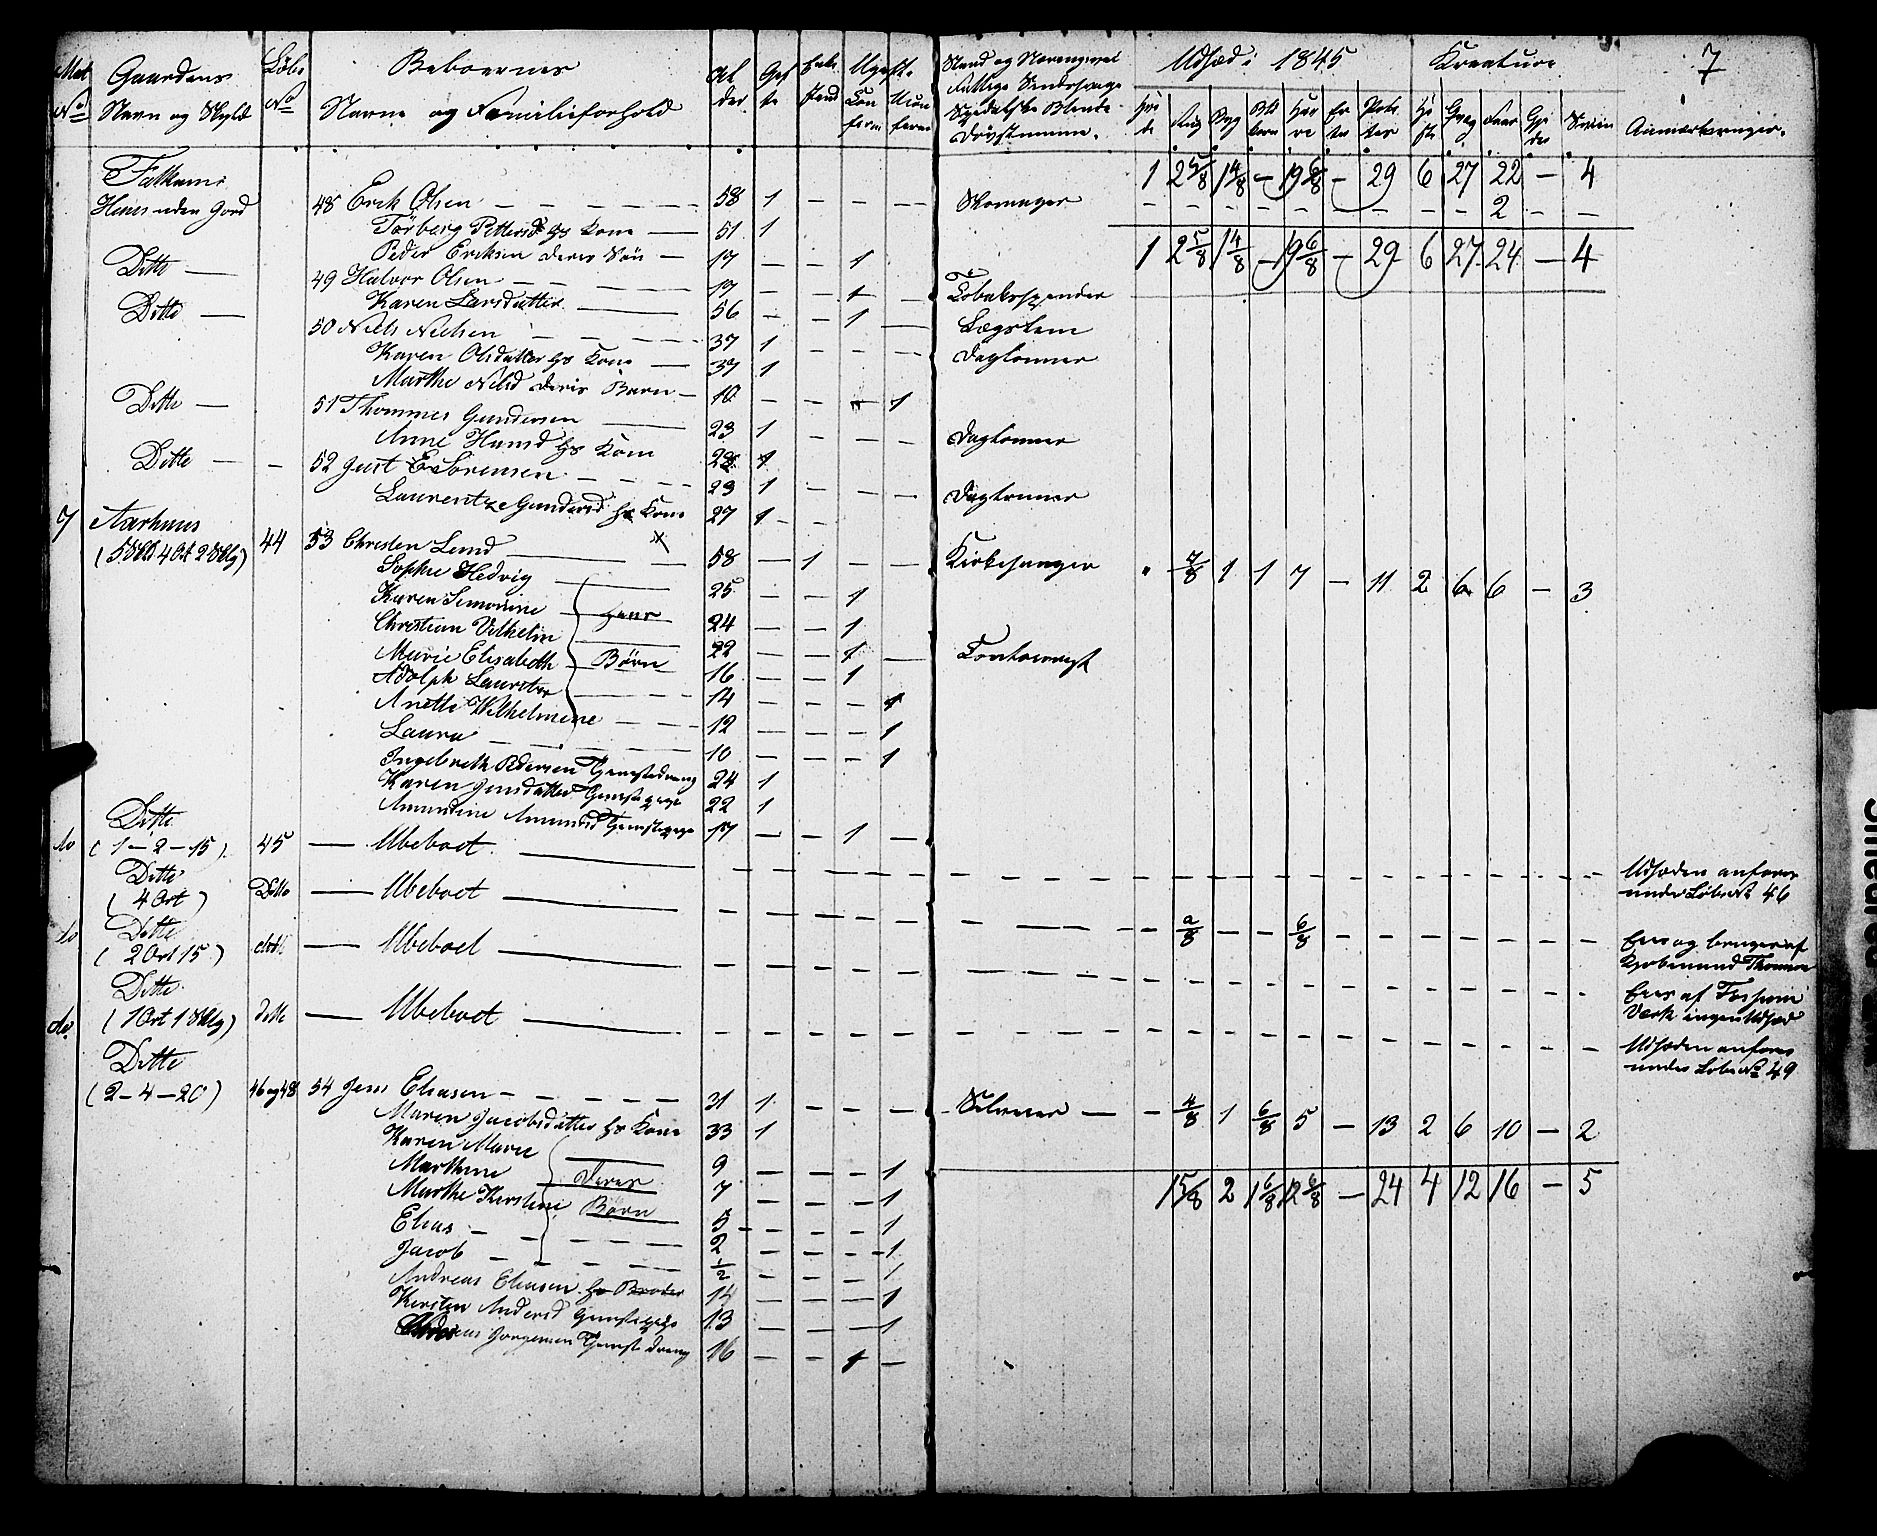 Mat No Gaardens Navn og Skyld Løbe No Beboernes Navne og Familieforhold Al der Gif te Enke stand Ugifte Con firm Ucon firm Stand og Næringsvei Udsæd i 1845 Hve de Rug Byg Havre Er ter Pote ter Kreature He ste Qvæg Faar Gje der Sviin Anmærkninger. 7
1 2 5/8 1 4/8 — 19 6/8 — 29 6 27 22 — 4
Huus uden Jord 48 Erik Olsen 58 1 — — — — — — — — — — 2 — —
Pettersd hs Kone 51 1
Peder Eriksen deres Søn 17 — — 1 1 2 5/8 1 4/8 — 19 6/8 — 29 6 27 24 — 4
Ditte — 49 Halvor Olsen 17 — — 1 — Tobaksspinder
Karen Larsdatter 56 — — 1 — Lægslem
Ditte — 50 Niels Nielsen 37 1 — — — Daglønner
Karen Olsdatter hs Kone 37 1
Marthe Nilsd deres Barn 10 — — — 1
Ditte — 51 Thommes Gundersen 23 1 — — — Daglønner
Anne Hansd hs Kone 1
Ditte — — 52 Just E Sørensen 23 1 — — — Daglønner
Laurentze Gundersd hs Kone 27 1 — —
7 Aarhuus
(5 Dlr 4 Ort 2 Skg) 44 53 Christen Lund 58 — 1 — — Kirkesanger 7/8 1 1 7 — 11 2 6 6 — 3
Sophie Hedvig 25 — — 1
Karen Simonine hans 24 — — 1
Christian Vilhelm 22 — — 1 — Contoirist
Marie Elisabeth Børn 16 — — 1
Adolph 14 — — — 1
Anette Wilhelmine 12 — — — 1
Laura 10 — — — 1
Ingebreth Pedersen Tjenestedreng 24 1
Karen Jensdatter Tjenestepige 22 1
Amundine Amundsd Tjenestepige 17 — — 1 —
Ditte
do (1 – 2 – 15) 45 — Ubeboet Udsæden anføres under Løbe No 46
Ditte
(4 Ort) Ditto — Ubeboet 2/8 — — 6/8 Eies og bruges af
Ditte
do (2 Ort 15) — Ubeboet Eies af Værk ingen Udsæd
Ditte
do. (1 Ort 1 Skg) ditto — Ubeboet Udsæden anføres under Løbe No 49
Ditte
(2 – 4 – 20) 46 og 48 54 Jens Eliasen 31 1 — — — Selveier — — 4/8 1 6/8 5 — 13 2 6 10 — 2
Maren Jacobsdatter hs Kone 33 1
Karen Marie 9 — — — 1
Marthine Deres 7 — — — 1 1 5/8 2 1 6/8 12 6/8 — 24 4 12 16 — 5
Marthe Kirstine Børn 5 — — — 1
Elias 2 — — — 1
Jacob 1/2 — — — 1
Andreas Eliasen hs Broder 14 — — — 1
Kirsten Andersd Tjenestepige 13 — — — 1
Jørgensen Tjenestedreng 16 — — 1 —